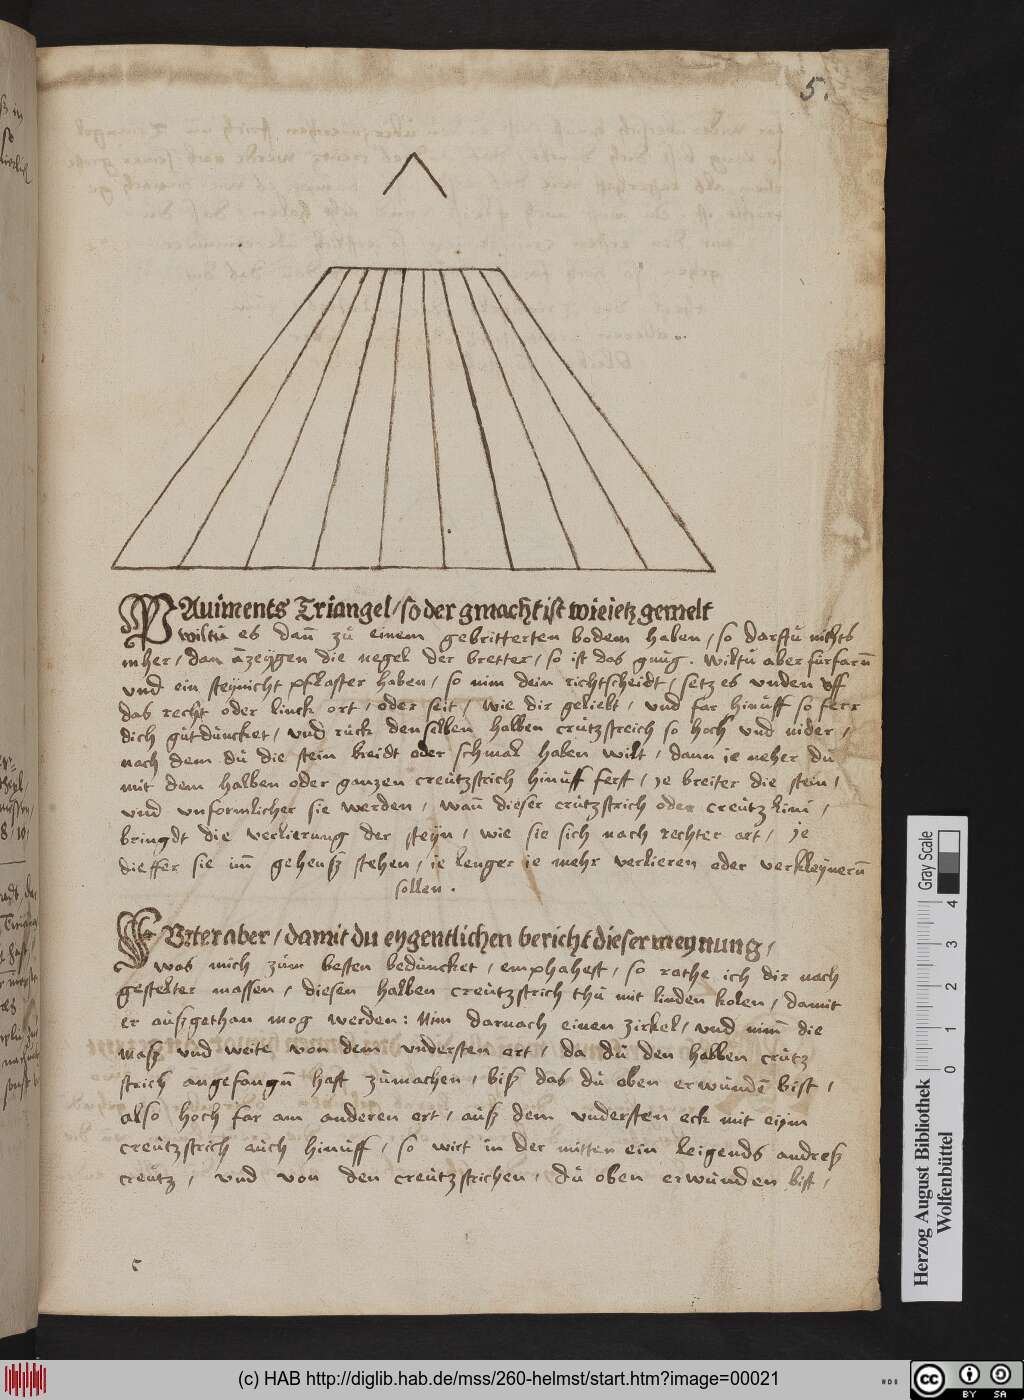 5.
PAuiments Triangel / so der gmacht ist wie ietz gemelt
wiltu es dann zu einem gebritterten bodem haben, so darffu nichts
mher, dan anzeygen die negel der bretter, so ist das gnug. wiltu aber fürfarn
und ein steynicht pflaster haben, so nim dein richtscheidt, setz es unden uff
das recht oder linck ort, oder seit, wie dir geliebt, und far hinuff so ferr
dich gutduncket, und ruck denselben halben creutzstreich so hoch und nider,
nach dem du die stein breidt oder schmal haben wilt, dann je neher du
mit dem halben oder gantzen creutzstrich hinuff ferst, je breiter die stein,
und unformlicher sie werden, wann dieser creutzstrich oder creutz lini,
bringdt die verlierung der steyn, wie sie sich nach rechter art, je
dieffer sie inn geheusz stehen, je lenger je mehr verlieren oder verkleynern
sollen.
Vrter aber / damit du eygentlichen bericht dieser meynung,
was mich zum besten beduncket, emphahest, so rathe ich dir nach
gestelter massen, diesen halben creutzstrich thu mit linden kolen, damit
er auszgethan mog werden: Nim darnach einen zirckel, und nimm die
masz und weite von dem understen ort, da du den halben creutz
strich angefangen hast zumachen, bisz das du oben erwunden bist,
also hoch far am anderen ort, ausz dem understen eck mit eym
creutzstrich auch hinuff, so wirt in der mitten ein leigends andresz
creutz, und von den creutzstrichen, du oben erwunden bist,
Herzog August Bibliothek
Wolfenbüttel
Gray Scale
0 1 2 3 4
(c) HAB http://diglib.hab.de/mss/260-helmst/start.htm?image=00021
BY SA